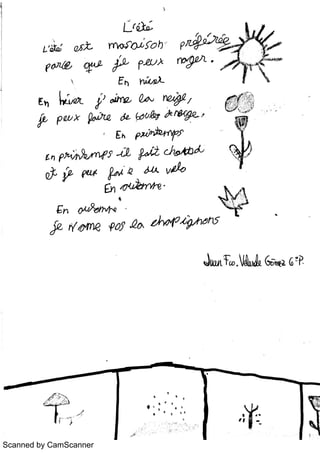 L'été
L'été est ma saison préférée
parce que je peux nager.
En hiver
En hiver j'aime la neige,
je peux faire de boules de neige.
En printemps
En printemps il fait chaud
et je peux faire du velo
En automne.
En automne.
je n'ome pas la chapignons
Juan Fco. Gómez 6ºP.
Scanned by CamScanner